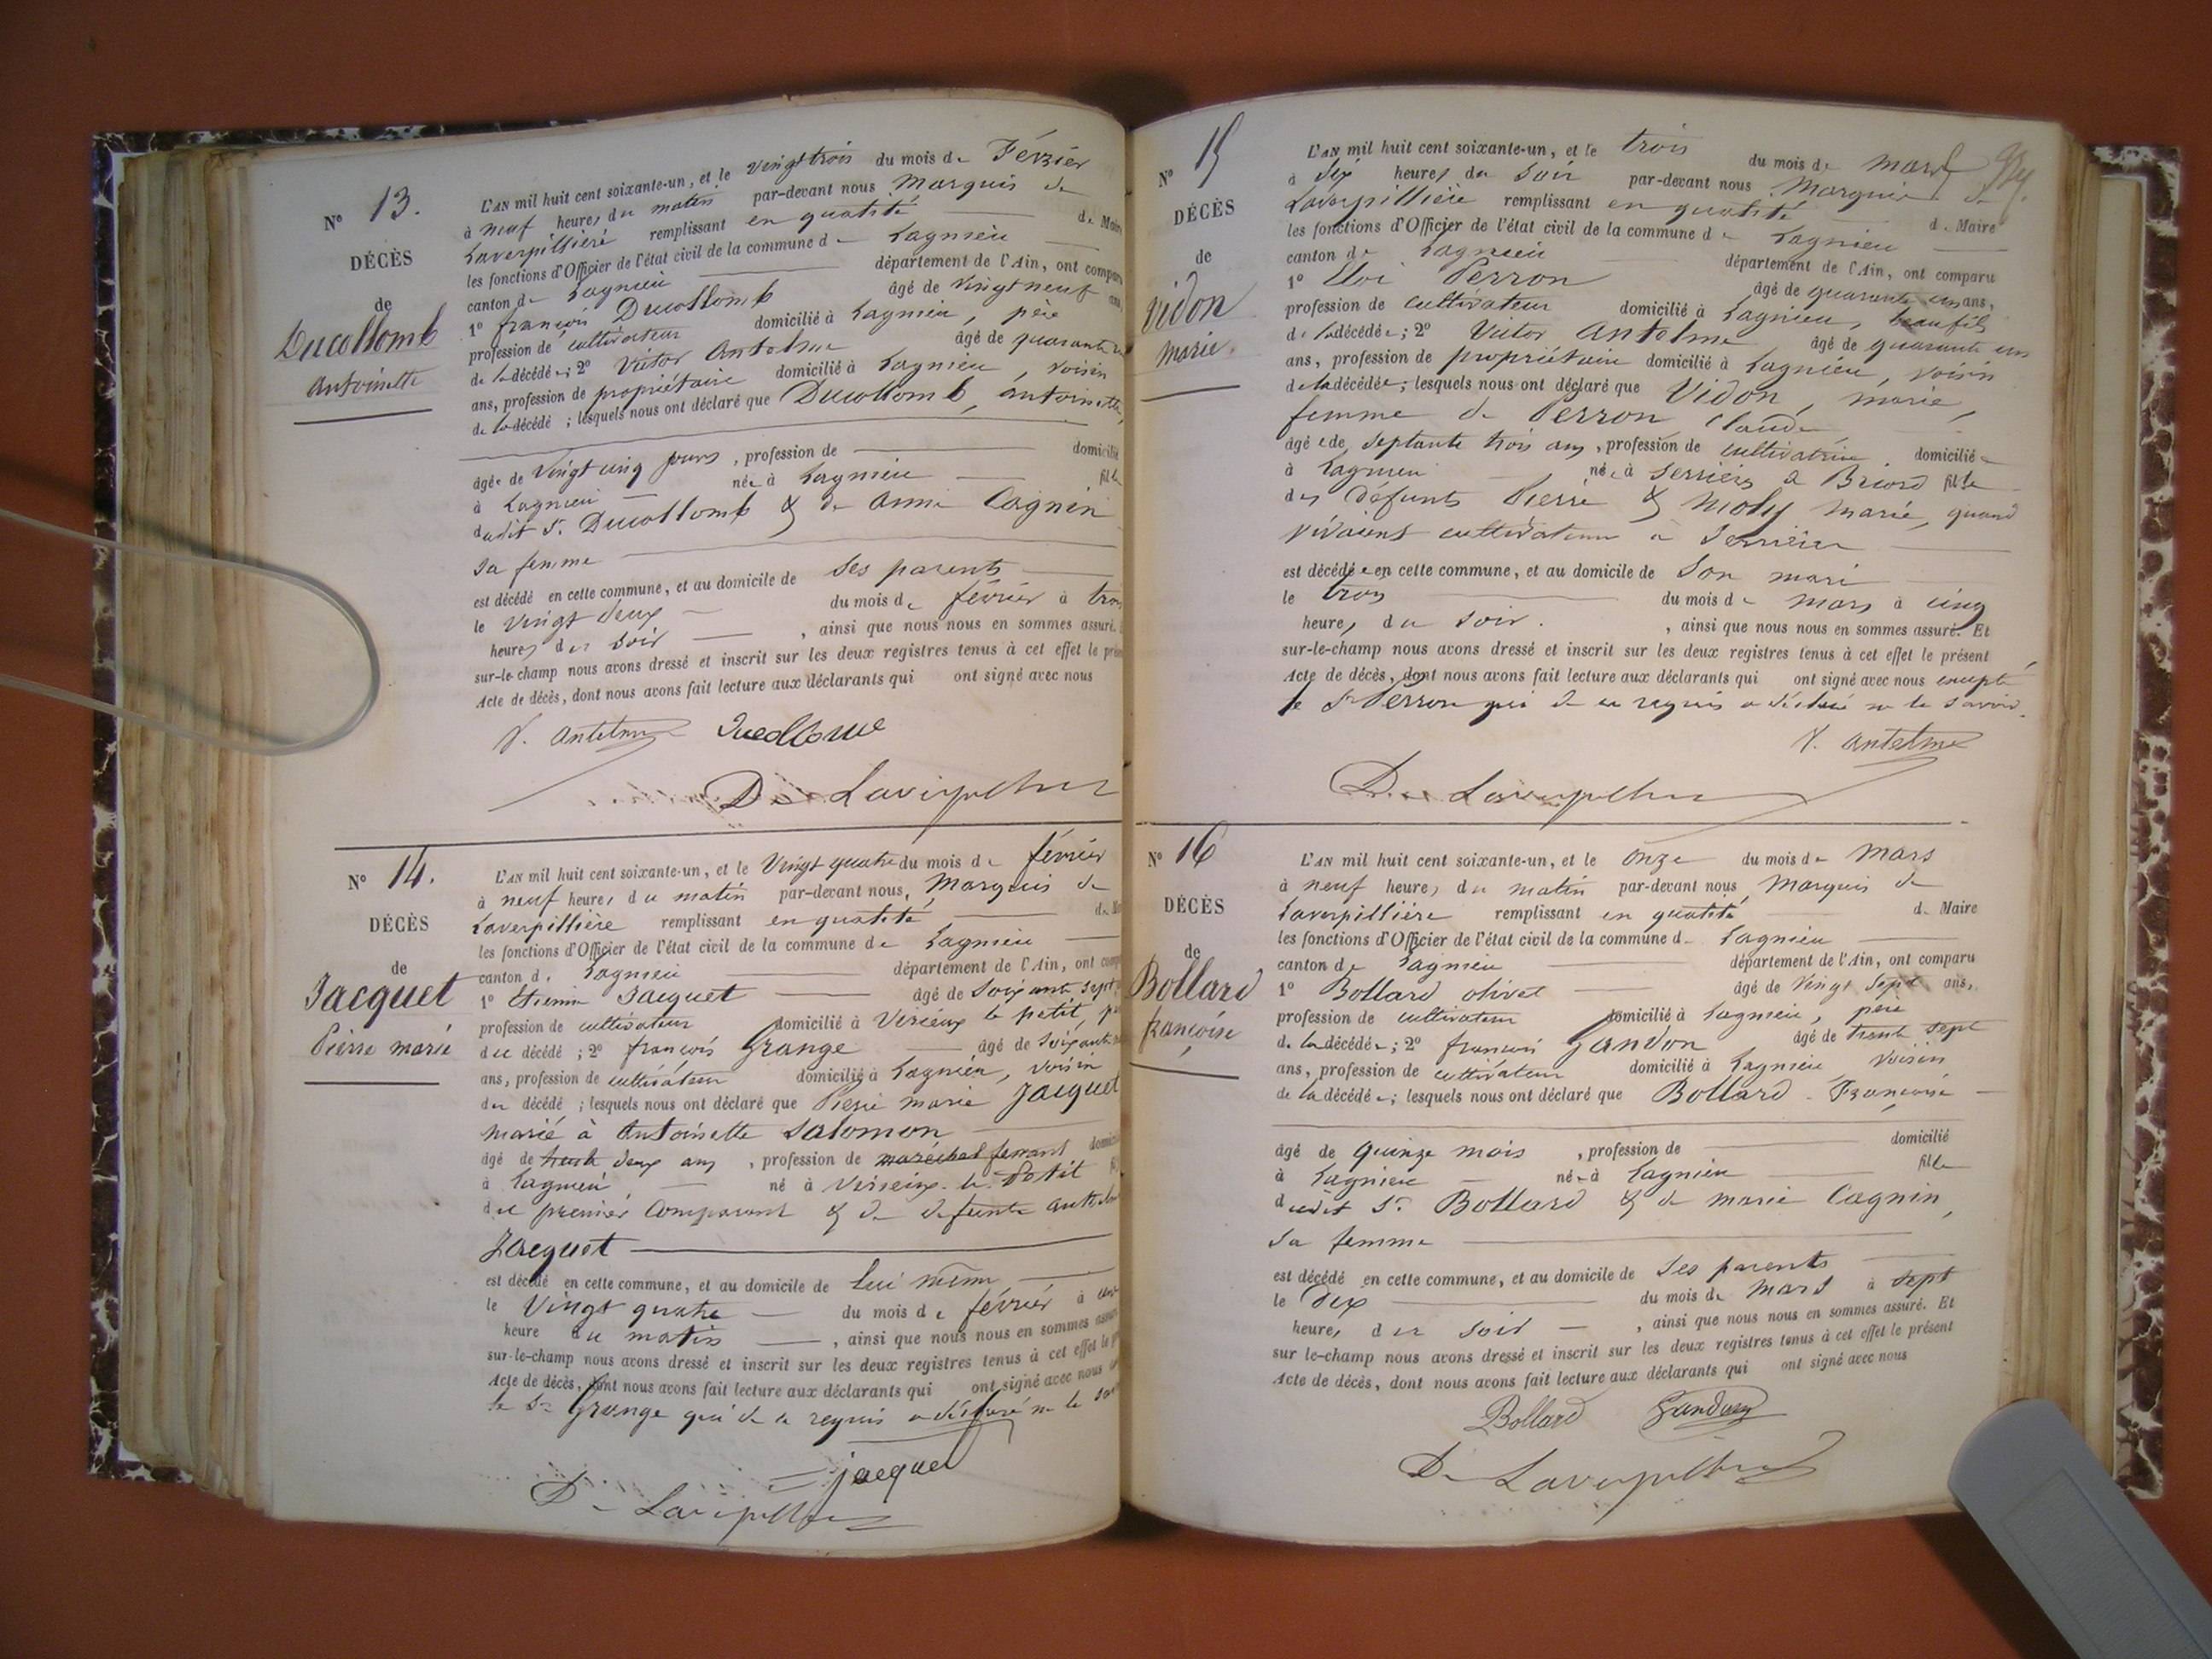 N° 13.
DÉCÈS
de
Ducollomb
Antoinette
L'AN mil huit cent soixante-un, et le vingt trois du mois de Février
à neuf heures du matin par-devant nous Marquis de
Laverpillière remplissant en qualité de Maire
les fonctions d'Officier de l'état civil de la commune de Lagnieu
canton de Lagnieu département de l'Ain, ont comparu
1° françois Ducollomb âgé de vingt neuf ans,
profession de cultivateur domicilié à Lagnieu, père
de la décédée; 2° Victor Antelme âgé de quarante
ans, profession de propriétaire domicilié à Lagnieu, voisin
de la décédé ; lesquels nous ont déclaré que Ducollomb, antoinette,
âgée de vingt cinq jours , profession de domicilié
à Lagnieu née à Lagnieu fille
dudit Sr. Ducollomb & de anne Cagnin
sa femme
est décédé en cette commune, et au domicile de ses parents
le vingt deux du mois de février à trois
heures du soir , ainsi que nous nous en sommes assuré.
sur-le-champ nous avons dressé et inscrit sur les deux registres tenus à cet effet le
Acte de décès, dont nous avons fait lecture aux déclarants qui ont signé avec nous
V. antelme Ducollomb
De Laverpillière
N° 14.
DÉCÈS
de
Jacquet
Pierre marie
L'AN mil huit cent soixante-un, et le Vingt quatre du mois de février
à neuf heures du matin par-devant nous, Marquis de
Laverpillière remplissant en qualité de
les fonctions d'Officier de l'état civil de la commune de Lagnieu
canton de Lagnieu département de l'Ain, ont
1° Etienne Jacquet âgé de soixante sept
profession de cultivateur domicilié à Virieux le petit,
du décédé ; 2° françois Grange âgé de soixante
ans, profession de cultivateur domicilié à Lagnieu, voisin
du décédé ; lesquels nous ont déclaré que Pierre marie Jacquet
marié à Antoinette Salomon
âgé de trente deux ans , profession de maréchal ferrant
à Lagnieu né à Virieux le Petit
du premier Comparant & de defunte
Jacquet
est décédé en cette commune, et au domicile de lui même
le Vingt quatre du mois de février à
heure du matin , ainsi que nous nous en sommes
sur-le-champ nous avons dressé et inscrit sur les deux registres tenus à cet effet le
Acte de décès, dont nous avons fait lecture aux déclarants qui ont signé avec nous
le Sr Grange qui de ce requis a déclaré ne le
jacquet
De Laverpillière
N° 15
DÉCÈS
de
Vidon
marie.
L'AN mil huit cent soixante-un, et le trois du mois de mars
à six heures du soir par-devant nous Marquis de
Laverpillière remplissant en qualité de Maire
les fonctions d'Officier de l'état civil de la commune de Lagnieu
canton de Lagnieu département de l'Ain, ont comparu
1° Eloi Perron âgé de quarante un ans,
profession de cultivateur domicilié à Lagnieu, beau fils
de la décédée; 2° Victor Antelme âgé de quarante un
ans, profession de propriétaire domicilié à Lagnieu, voisin
de la décédée; lesquels nous ont déclaré que Vidon, marie,
femme de Perron Claude
âgée de septante trois ans, profession de cultivatrice domiciliée
à Lagnieu née à Serrières de Briord fille
des défunts Pierre & Moly marie, quand
vivaient cultivateurs à Serrières
est décédée en cette commune, et au domicile de son mari
le trois du mois de mars à cinq
heures du soir. , ainsi que nous nous en sommes assuré. Et
sur-le-champ nous avons dressé et inscrit sur les deux registres tenus à cet effet le présent
Acte de décès, dont nous avons fait lecture aux déclarants qui ont signé avec nous excepté
le Sr Perron qui de ce requis a déclaré ne le savoir.
V. antelme
De Laverpillière
N° 16
DÉCÈS
de
Bollard
françoise
L'AN mil huit cent soixante-un, et le onze du mois de mars
à neuf heures du matin par-devant nous Marquis de
Laverpillière remplissant en qualité de Maire
les fonctions d'Officier de l'état civil de la commune de Lagnieu
canton de Lagnieu département de l'Ain, ont comparu
1° Bollard olivet âgé de vingt sept ans,
profession de cultivateur domicilié à Lagnieu, père
de la décédée; 2° françois Gandon âgé de trente sept
ans, profession de cultivateur domicilié à Lagnieu, voisin
de la décédée; lesquels nous ont déclaré que Bollard Françoise
âgé de quinze mois , profession de domicilié
à Lagnieu née à Lagnieu fille
dudit Sr. Bollard & de marie Cagnin,
sa femme
est décédé en cette commune, et au domicile de ses parents
le dix du mois de mars à sept
heures du soir , ainsi que nous nous en sommes assuré. Et
sur le-champ nous avons dressé et inscrit sur les deux registres tenus à cet effet le présent
Acte de décès, dont nous avons fait lecture aux déclarants qui ont signé avec nous
Bollard Gandon
De Laverpillière